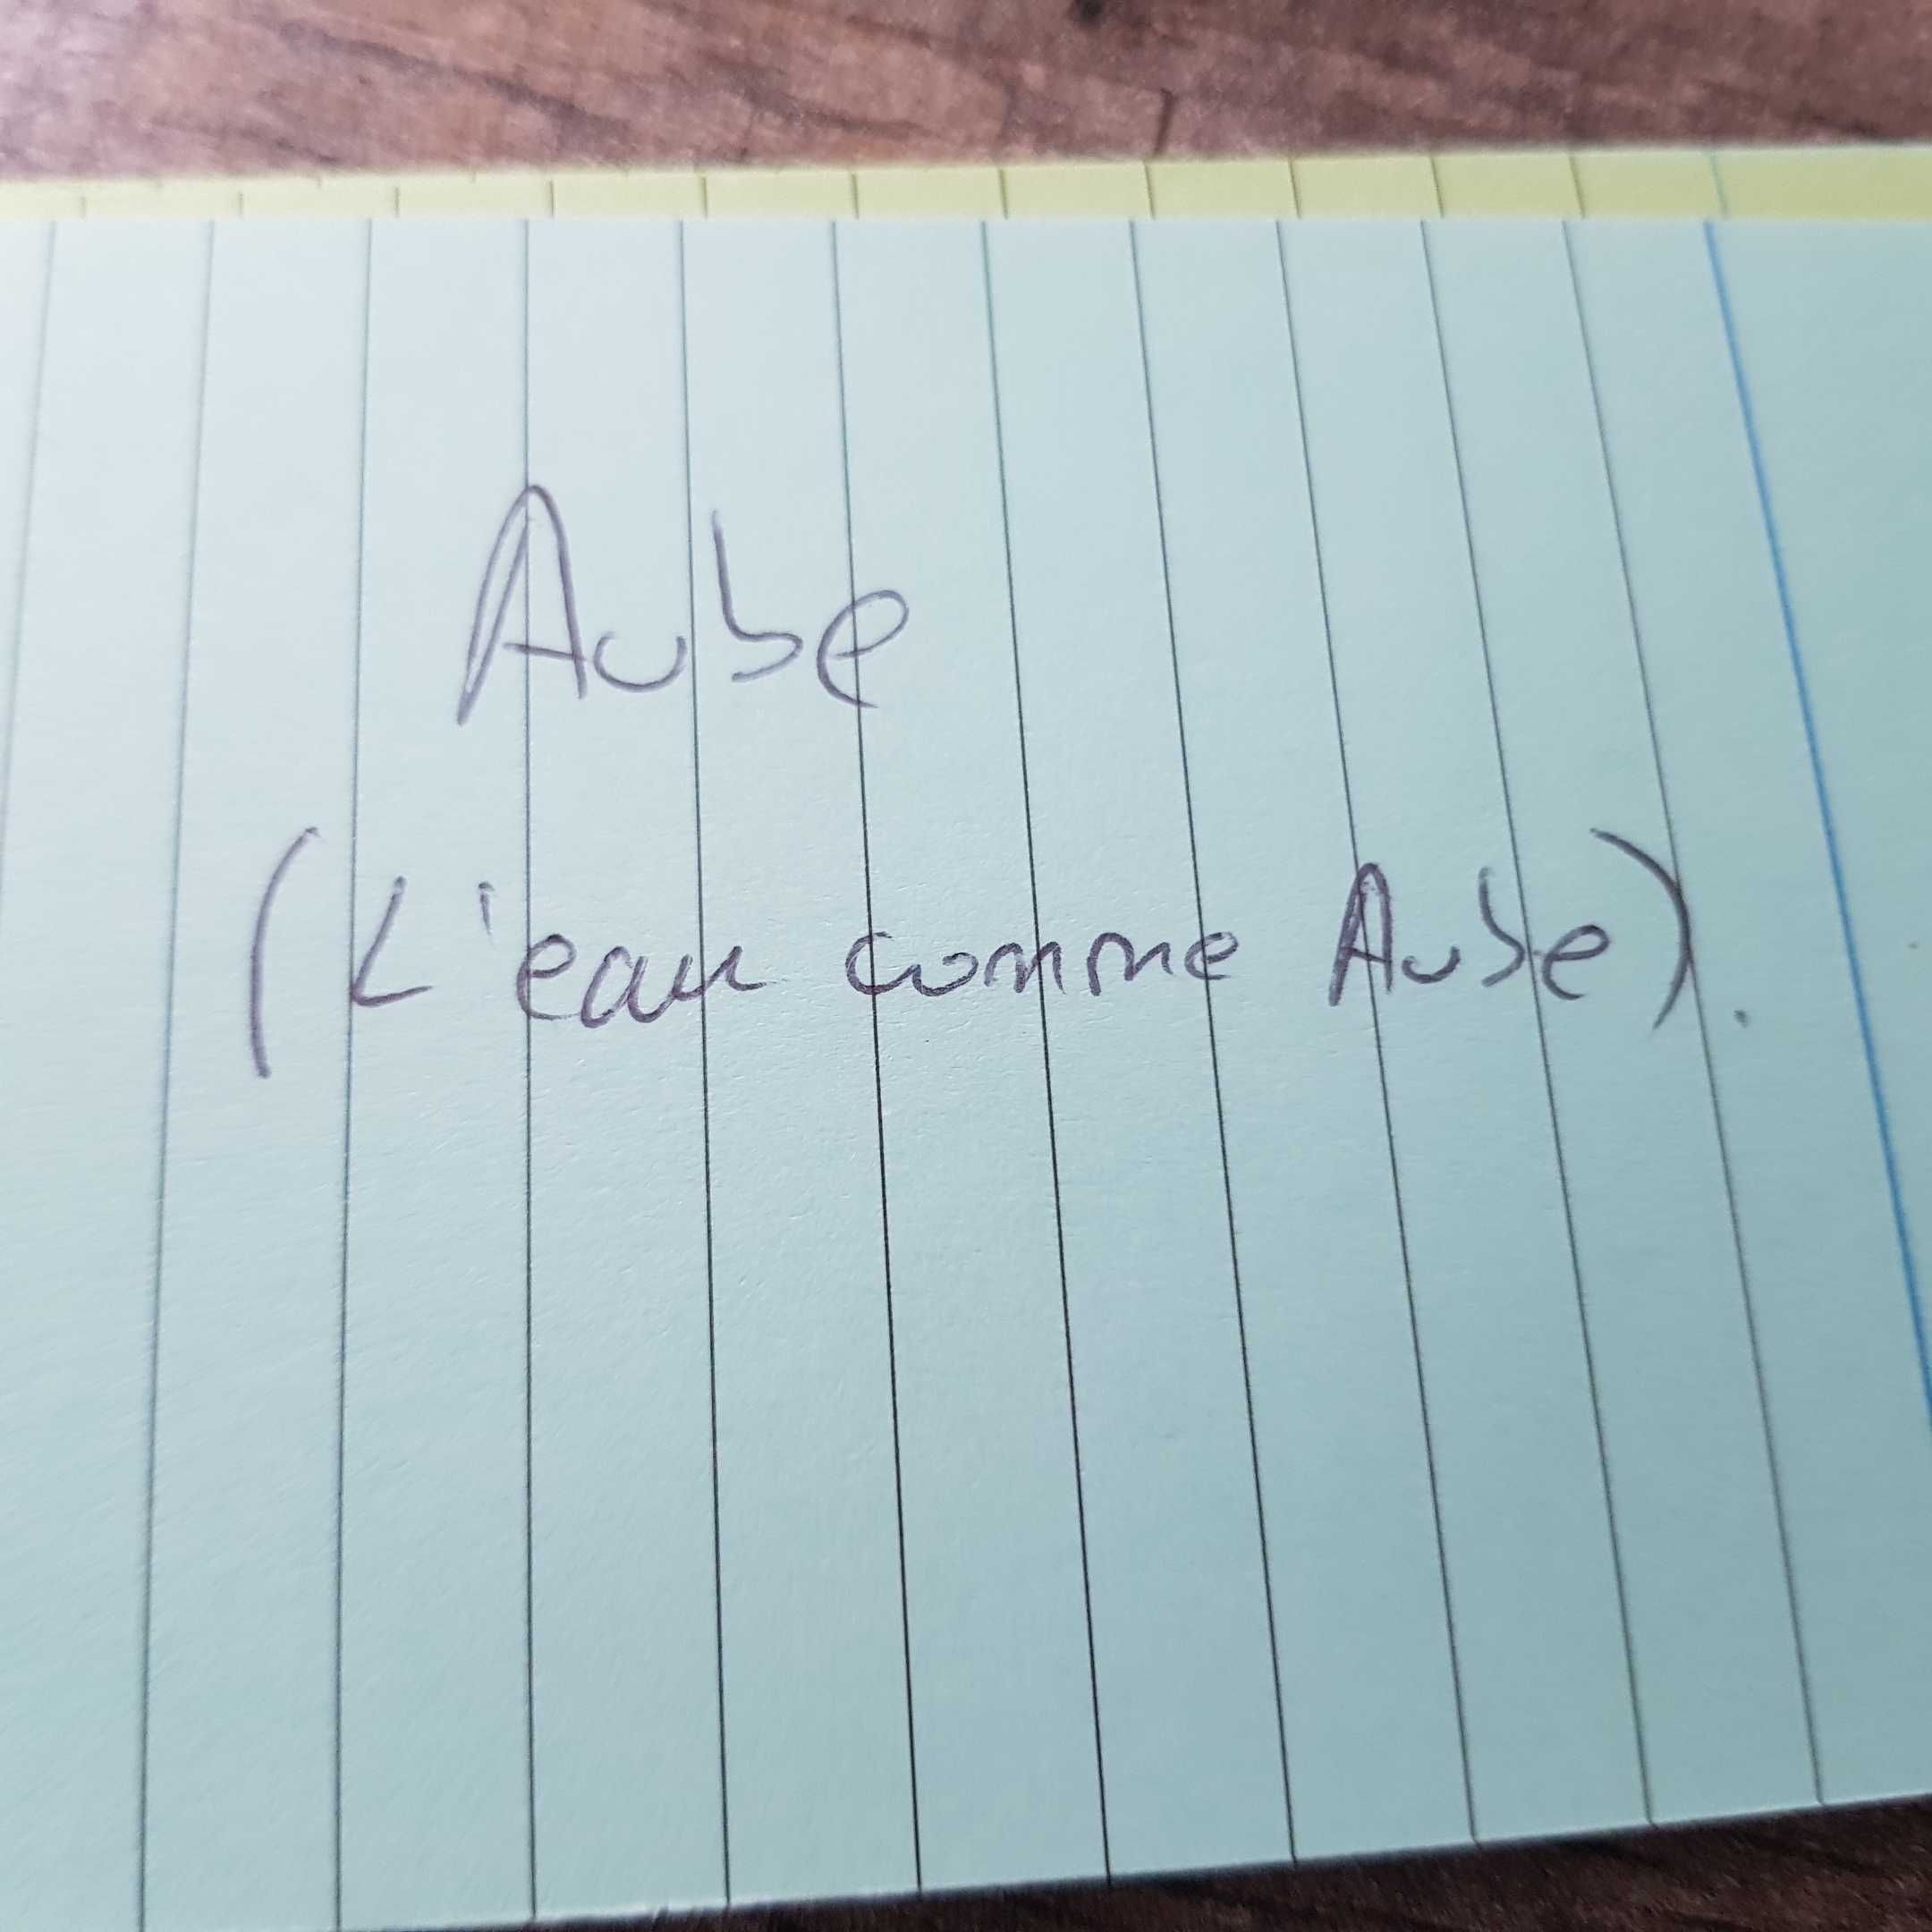 Aube
(L'eau comme Aube).